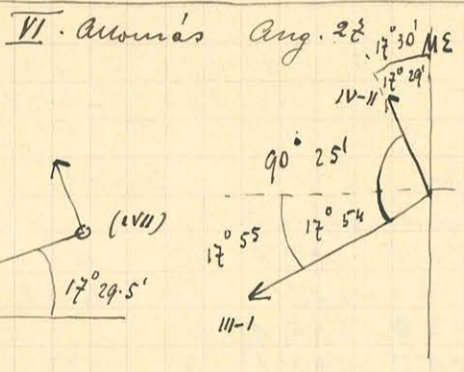 VI. Állomás Aug. 27
17° 30' ME
17° 29'
IV-II
90° 25'
(LVII)
17° 55
17° 54
17° 29.5'
III-I